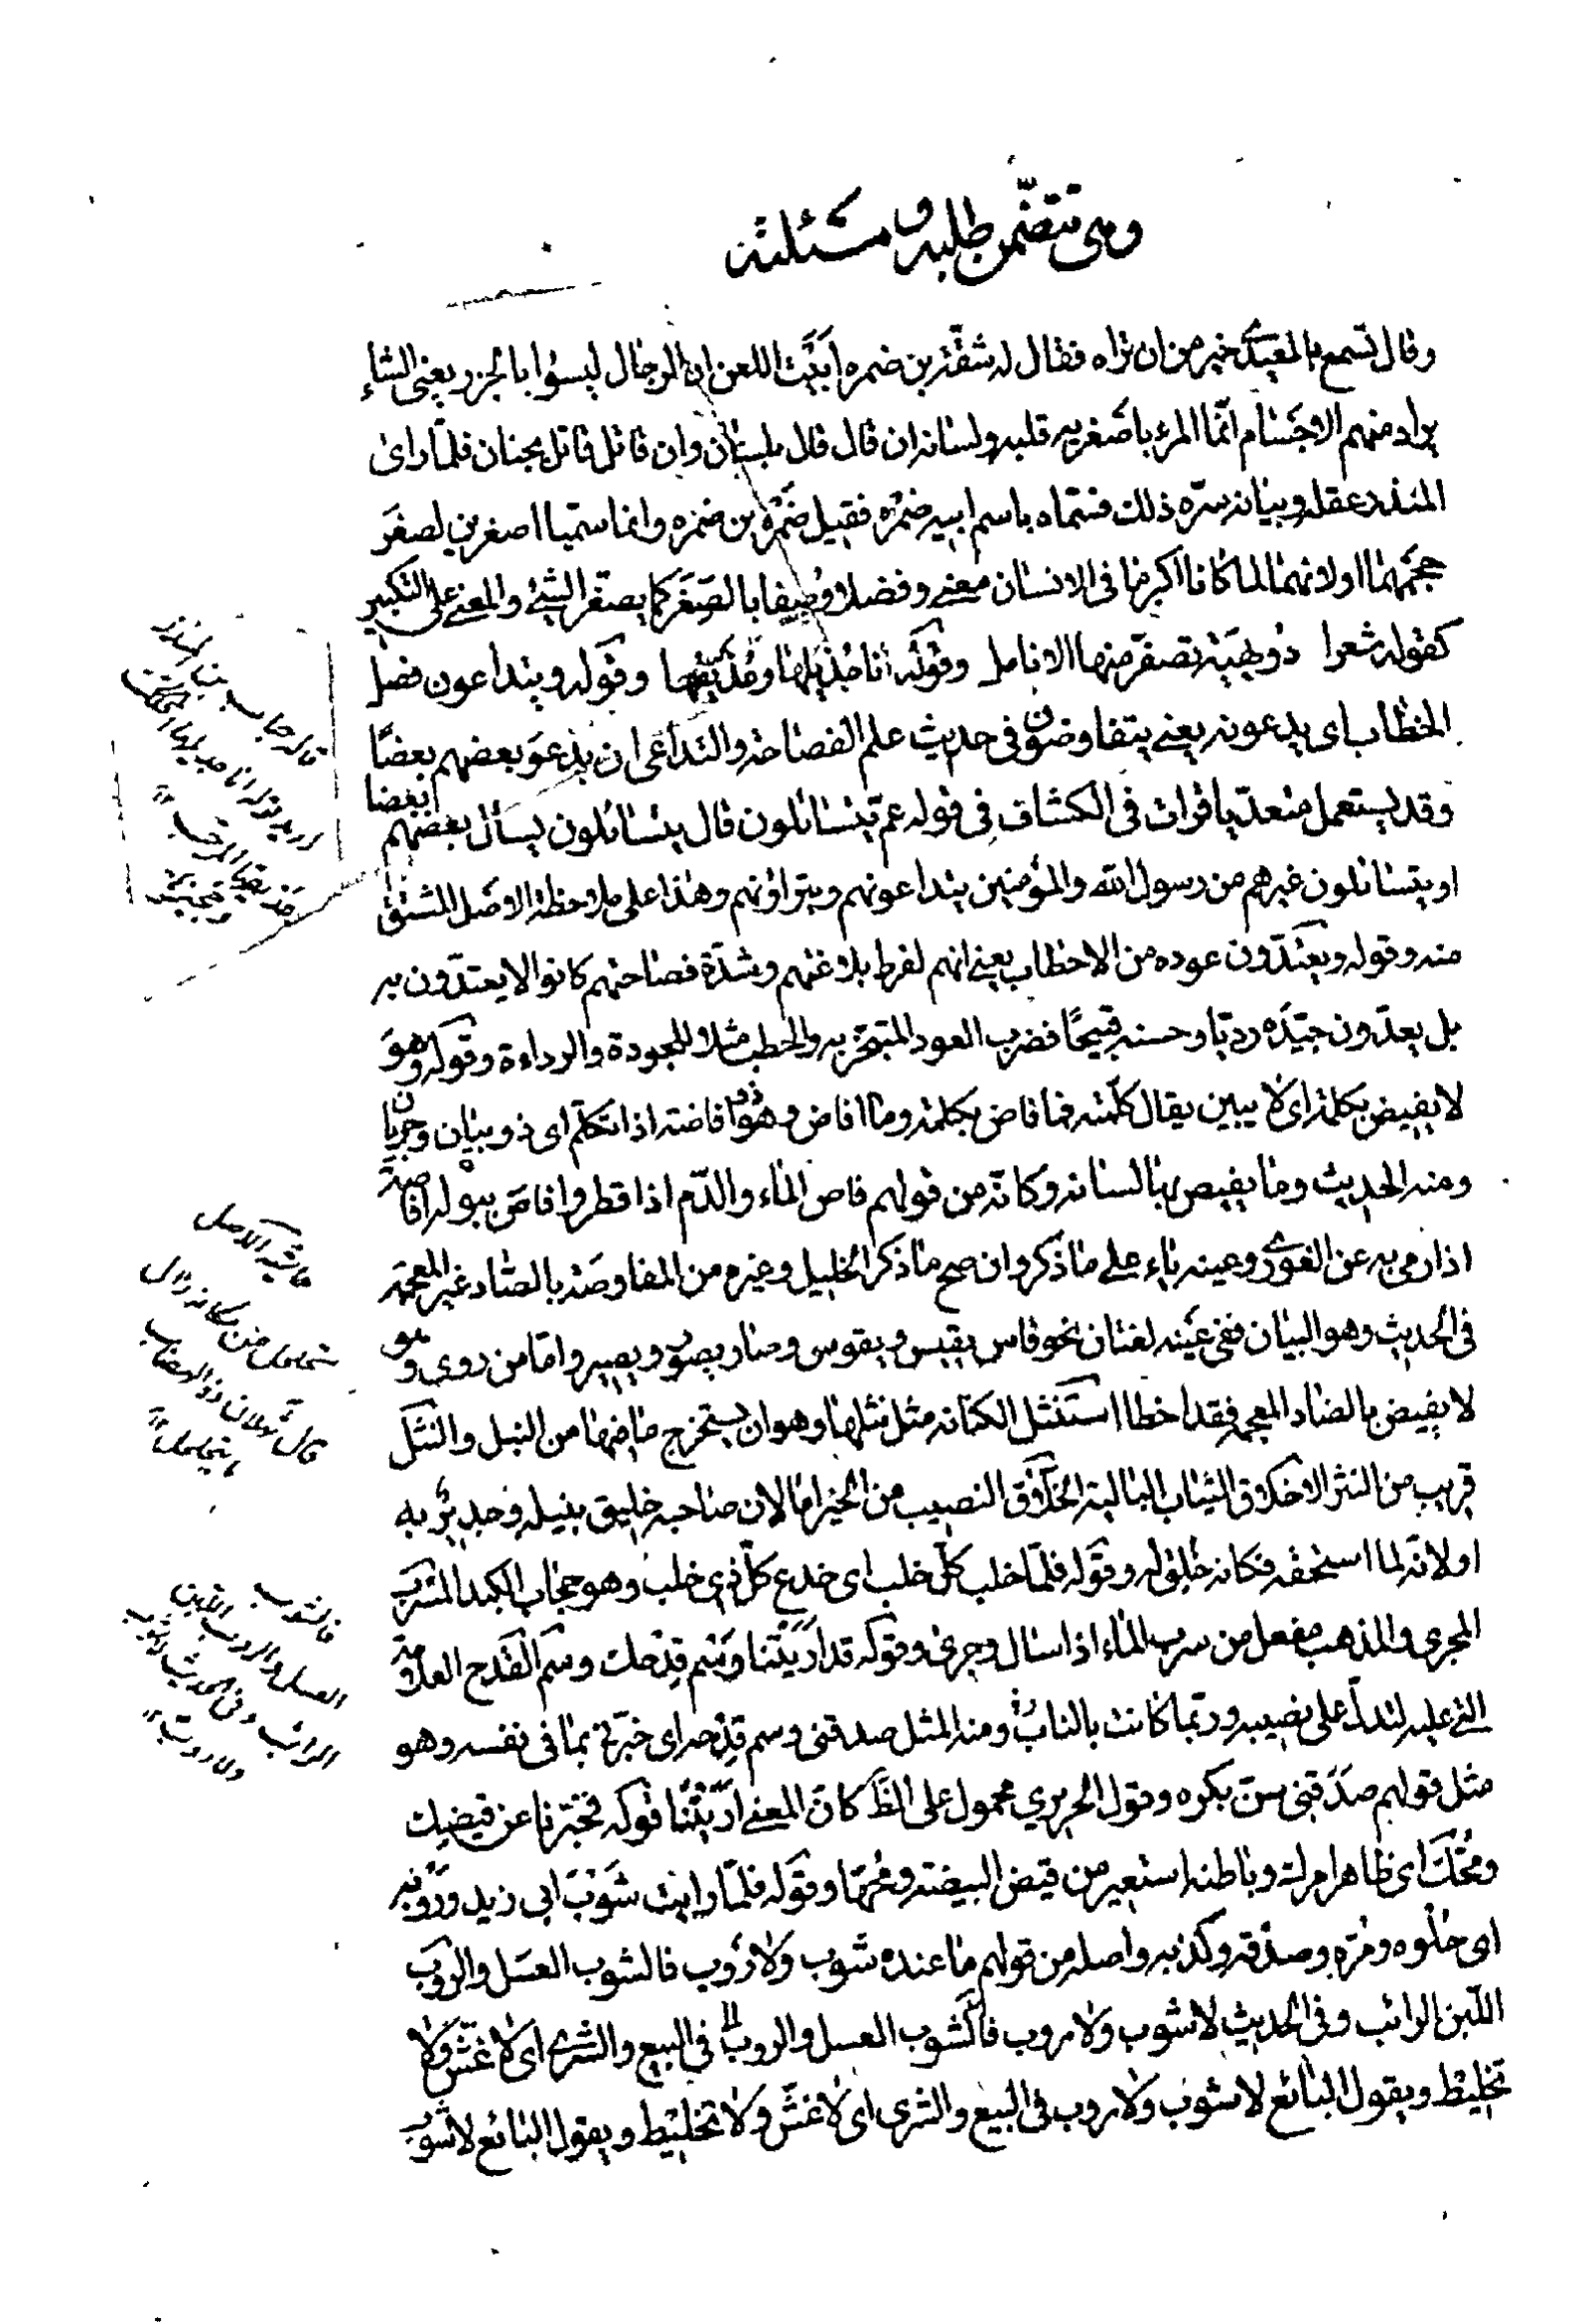 وهى تتضمّن طلبه و مسئلته
وقال تسمع بالمعيديّ خير من ان تراه فقال له شقّة بن ضمره ابيت اللعن ان الرجال ليسوا بالجزر يعنى الشاء
يراد منهم الاجسام انما المرء باصغريه قلبه ولسانه ان قال قال بلسان وان قاتل قاتل بجنان فلمّا راى
المنذر عقله وبيانه سرّه ذلك فسمّاه باسم ابيه ضمره فقيل ضمرة بن ضمره وانما سميا اصغرين لصغر
حجمهما اولانهما لما كانا اكبر ما فى الانسان معنى وفضلا وصفا بالصّغر كما يصغّر الشئ والمعنى على التكبير
كقوله شعرا دويهيّة تصفرّ منها الانامل وقوله انا جُذيلها وعُذيقها وقوله ويتداعون فصل
الخطاب اى يدعونه يعنى يتفاوضون فى حديث علم الفصاحة والتداعى ان يدعو بعضهم بعضًا
وقد يستعمل متعدّيا قرات فى الكشاف فى قوله عمّ يتسائلون قال يتسائلون يسأل بعضهم بعضا
او يتسائلون غيرهم من رسول الله والمؤمنين يتداعونهم ويتراؤنهم وهذا على ملاحظة الاصل المشتق
منه وقوله ويعتدّون عوده من الاحطاب يعنى انهم لفرط بلاغتهم وشدّة فصاحتهم كانوا لا يعتدّون به
بل يعدّون جيّده رديّا وحسنه قبيحًا فضرب العود المتبخّر به والحطب مثلا للجودة والرداءة وقوله وهو
لا يفيص بكلمة اى لا يبين يقال كلّمته فما فاص بكلمة وما افاص وهو ذو افاصة اذا تكلم اى ذو بيان وجريان
ومنه الحديث وما يفيص بها لسانه وكانّه من قولهم فاص الماء والدّم اذا قطر وافاص ببوله افاصة
اذا رمى به عن الغورى وعينه ياء على ما ذكر وان صح ما ذكر الخليل وغيره من المفاوصة بالصّاد غير المعجمة
فى الحديث وهو البيان ففى عينه لغتان نحو قاس يقيس ويقوس وصار يصور ويصير وامّا من روى وهو
لا يفيض بالضاد المعجمة فقد اخطا استنثل الكنانه مثل نثلها وهو ان يستخرج ما فيها من النبل والنثل
قريب من النثر الاخلاق الثياب البالية الخلاق النصيب من الخير امّا لان صاحبه خليق بنيله وجدير به
اولانّه لما استحقه فكانه خلق له وقوله فلمّا خلب كلّ خلب اى خدع كلّ ذى خلب وهو حجاب الكبد المسرب
المجرى والمذهب مفعل من سرب الماء اذا سال وجرى وقوله قد اريتنا وسم قدحك وسم القدح العلامة
التى عليه لتدلّ على نصيبه وربّما كانت بالناب ومنه المثل صدقنى وسم قدحه اى خبّرنى بما فى نفسه وهو
مثل قولهم صدَقنى سنّ بكره وقول الحريرى محمول على الظّ كانّ المعنى اريتنا قوله فخبّرنا عن قيضك
ومحّك اى ظاهر امرك وباطنه استعير من قيض البيضة ومحّها وقوله فلمّا رايت شوب ابى زيد وروبه
اى حلوه ومرّه وصدقه وكذبه واصله من قولهم ما عنده شوب ولا روب فالشوب العسل والروب
اللبن الرائب وفى الحديث لا شوب ولا روب فالشوب العسل والروب فى البيع والشرى اى لا غشّ ولا
تخليط ويقول البائع لا شوب ولا روب فى البيع والشرى اى لا غشّ ولا تخليط ويقول البائع لا شوب
فالشوب
العسل والروب اللبن
الرائب وفى الحديث لا شوب
ولا روب